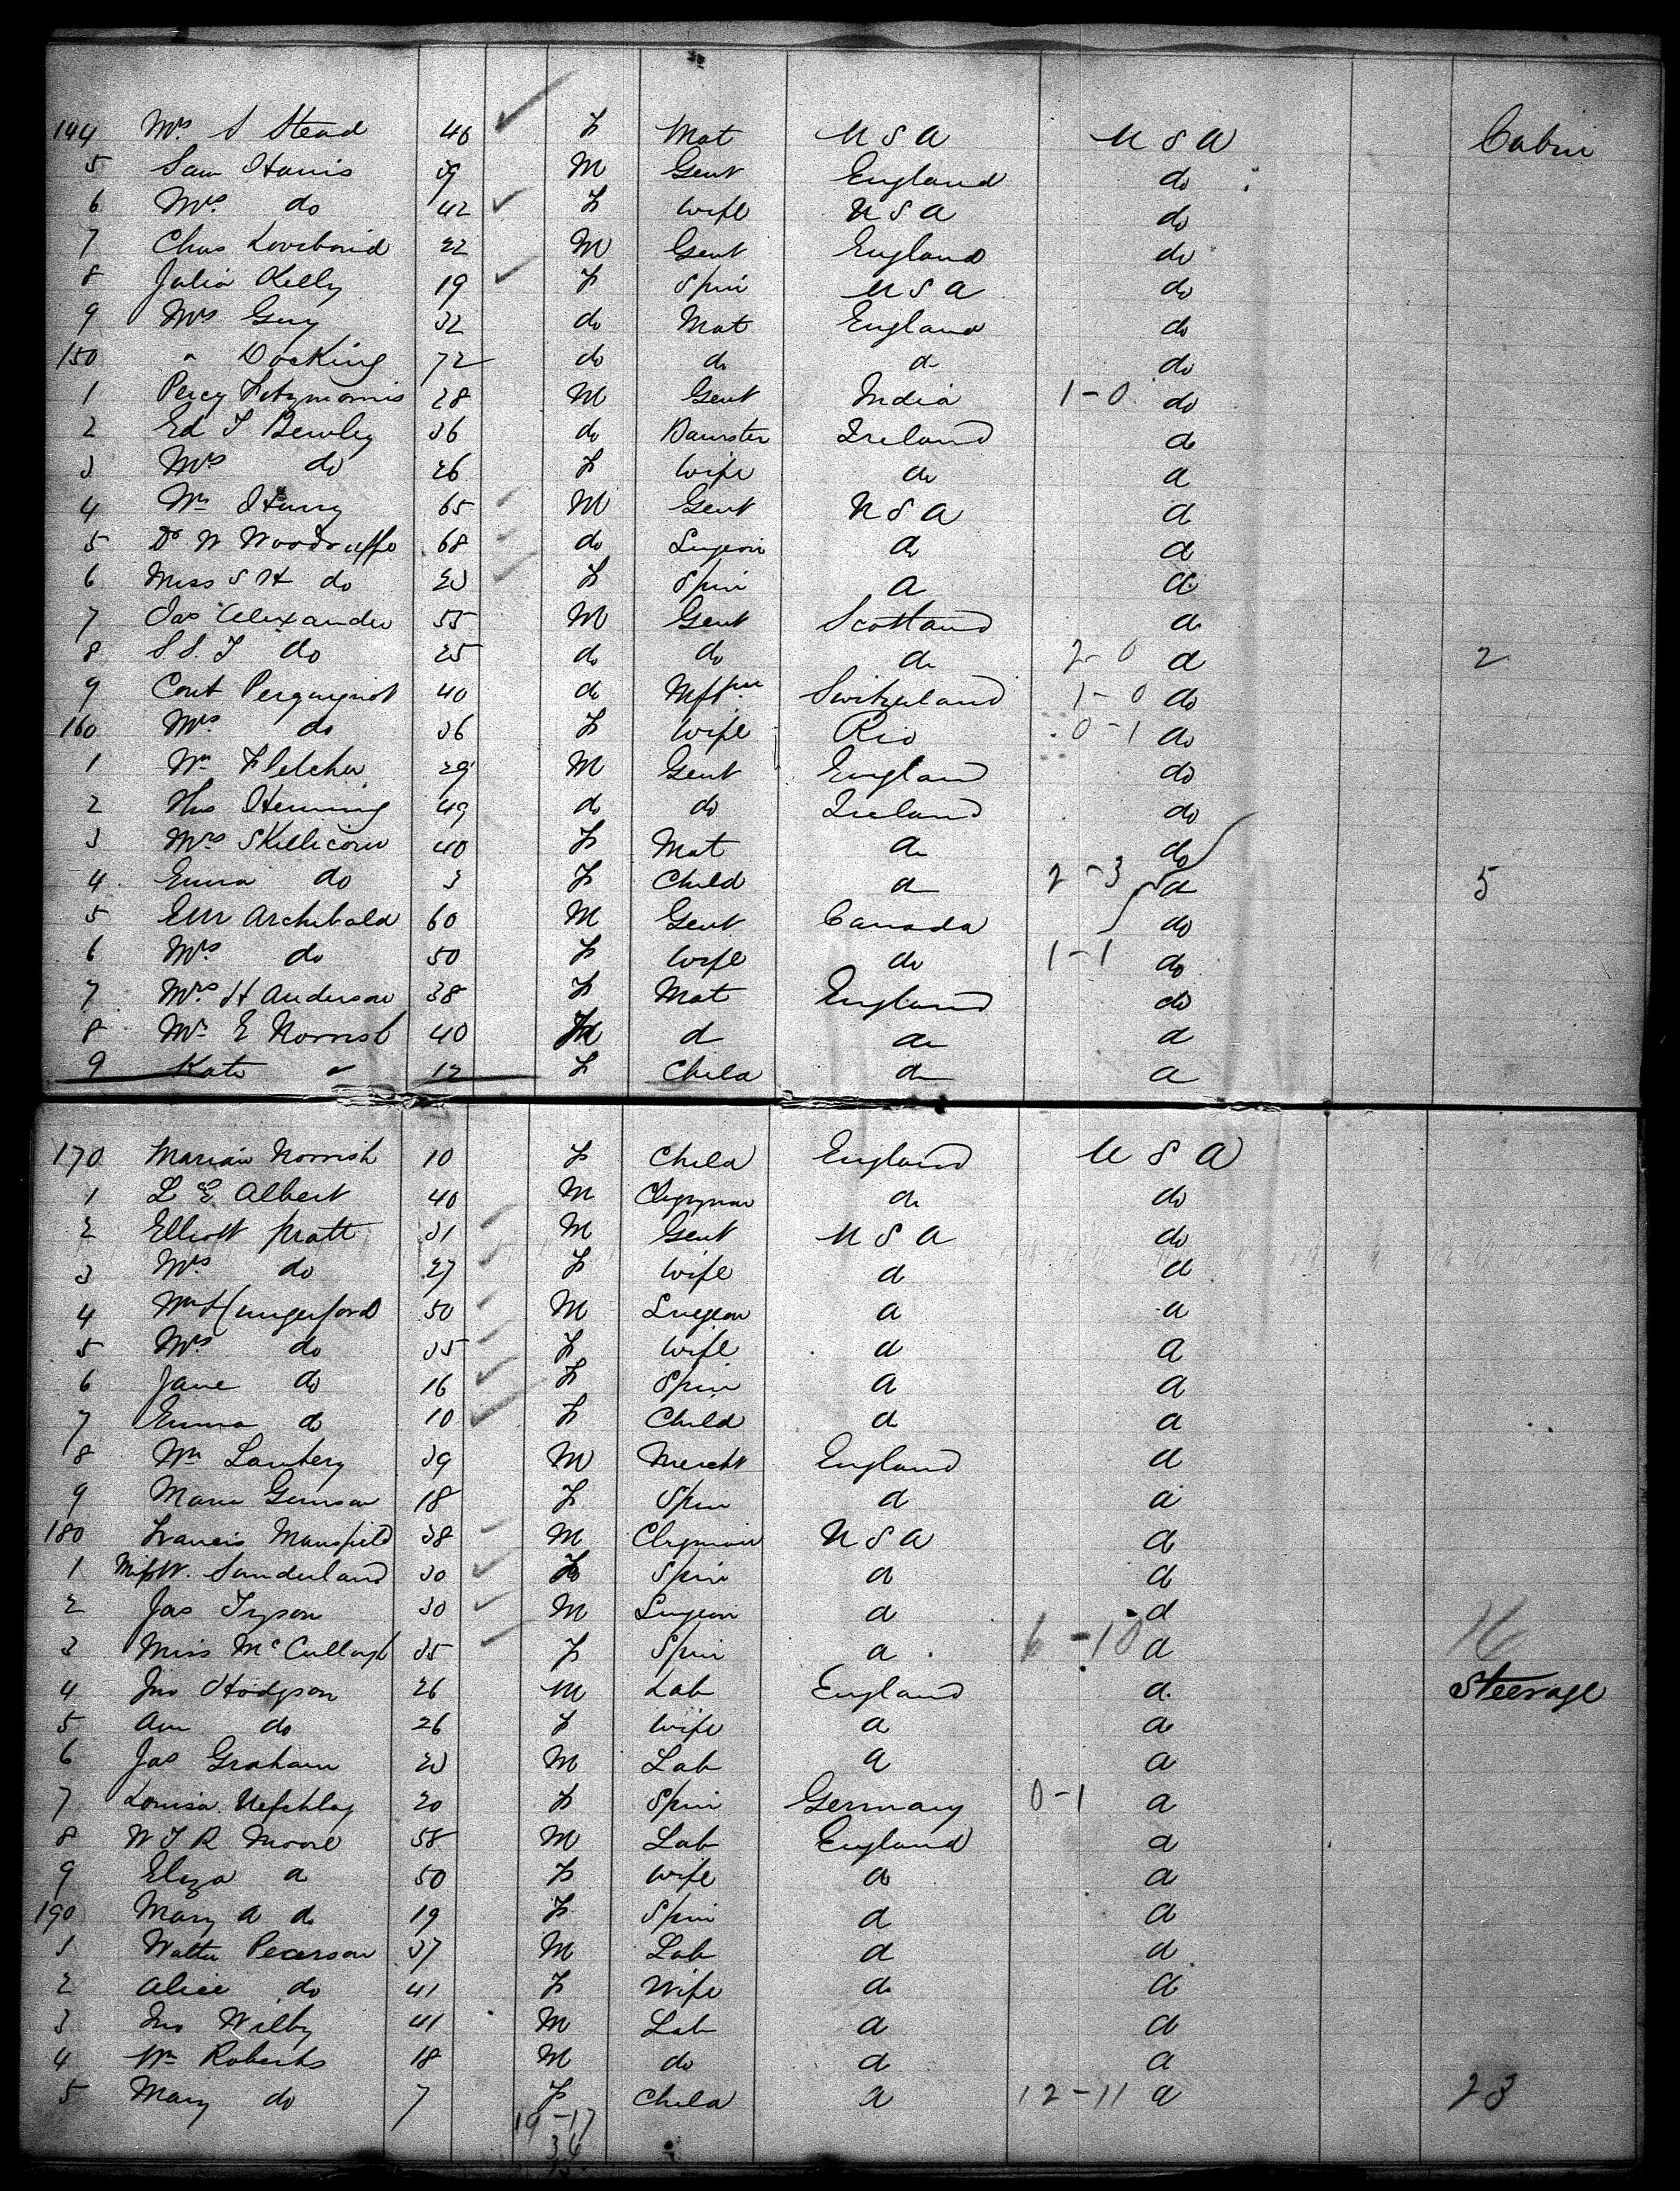 144 Mrs S Stead 46 F Mat U S A U S A Cabin
5 Sam Harris 39 M Gent England do
6 Mrs do 42 F Wife U S A do
7 Chas 22 M Gent England do
8 Julia Kelly 19 F Spin U S A do
9 Mrs Guy 32 do Mat England do
150 " Docking 72 do do do do
1 Percy Fitzmorris 28 M Gent India 1-0 do
2 Ed T Bewley 36 do Barrister Ireland do
3 Mrs do 26 F Wife do do
4 Wm Hurry 65 M Gent U S A do
5 Dr W Woodruffe 68 do Surgeon do do
6 Miss S H do 23 F Spin do do
7 Jas Alexander 55 M Gent Scotland do
8 S. S. T do 25 do do do 2-0 do 2
9 40 do Switzerland 1-0 do
160 Mrs do 36 F Wife Rio 0-1 do
1 Wm Fletcher 29 M Gent England do
2 Thos Henning 49 do do Ireland do
3 Mrs Skillicorn 40 F Mat do do
4 Emma do 3 F Child do 2-3 do 5
5 EM Archibald 60 M Gent Canada do
6 Mrs do 50 F Wife do 1-1 do
7 Mrs H Anderson 38 F Mat England do
8 E Norrish 40 F do do do
9 Kate " 12 F Child do do
170 Marian Norrish 10 F Child England U S A
1 L E Albert 40 M Clergyman do do
2 Elliott Pratt 31 M Gent U S A do
3 Mrs do 27 F Wife do do
4 Wm Hungerford 50 M Surgeon do do
5 Mrs do 35 F Wife do do
6 Jane do 16 F Spin do do
7 Emma do 10 F Child do do
8 Wm 39 M Mercht England do
9 18 F Spin do do
180 Francis Mansfield 38 M Clergyman U S A do
1 Miss W. Sunderland 30 F Spin do do
2 Jas Tyson 30 M Surgeon do do
3 Miss McCullough 35 F Spin do 6-10 do 16
4 Jno Hodgson 26 M Lab England do Steerage
5 Ann do 26 F Wife do do
6 Jas Graham 23 M Lab do do
7 Louisa 20 F Spin Germany 0-1 do
8 W T R Moore 58 M Lab England do
9 Eliza do 50 F Wife do do
190 Mary A do 19 F Spin do do
1 Walter Pearson 37 M Lab do do
2 Alice do 41 F Wife do do
3 Jno Wilby 41 M Lab do do
4 Wm Roberts 18 M do do do
5 Mary do 7 F Child do 12-11 do 23
19-17
36